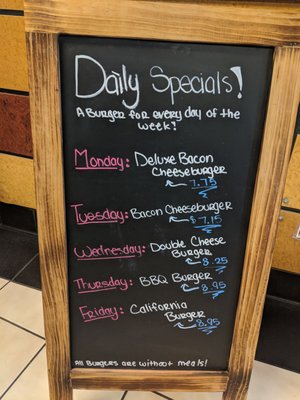 Daily Specials!
A Burger for every day of the
week!
Monday: Deluxe Bacon
Cheeseburger
7.75
Tuesday: Bacon Cheeseburger
$7.15
Wednesday: Double Cheese
Burger
8.25
Thursday: BBQ Burger
8.95
Friday: California
Burger
8.95
All Burgers are without meals!